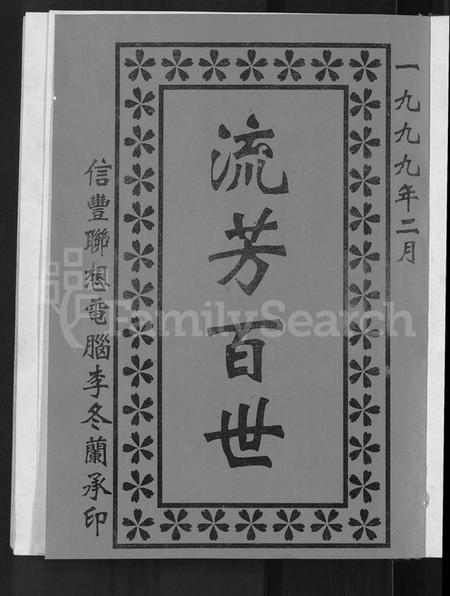 一九九九年二月
流芳百世
信豐聯想電腦李冬蘭承印
FamilySearch